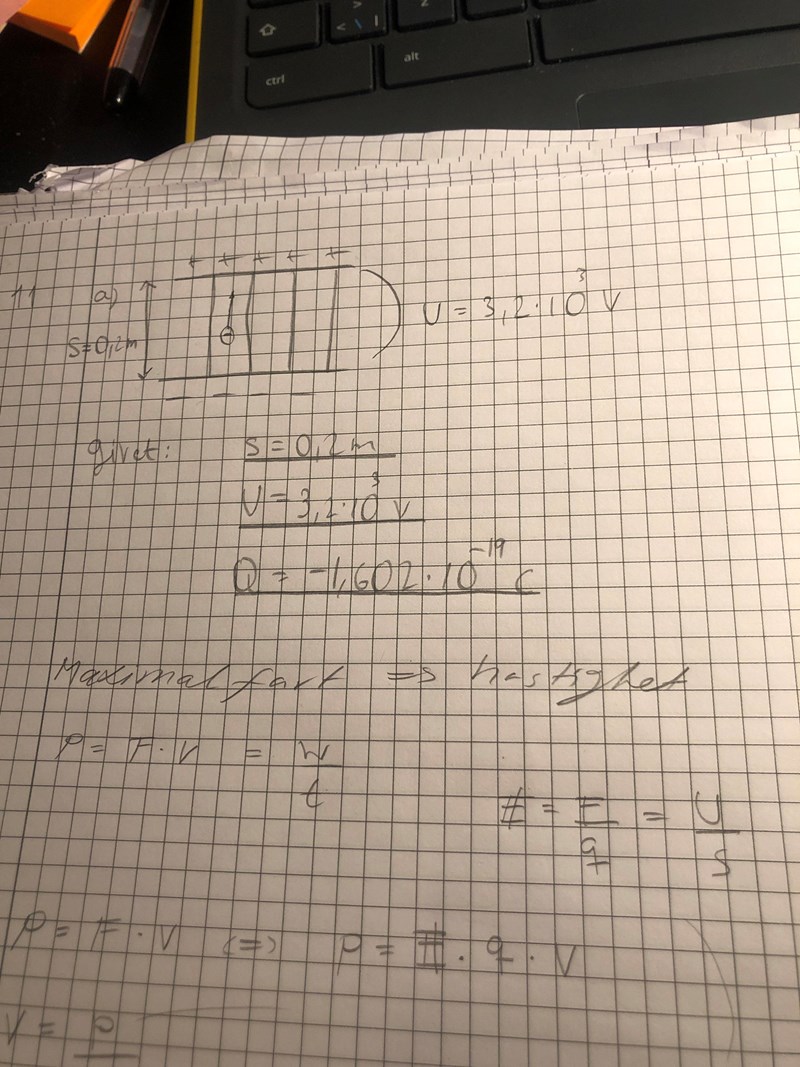 ctrl
alt
+ + + + +
11 a)
S=0,2m
U = 3,2·10³ V
- - - -
givet: s = 0,2m
U = 3,2·10³ V
Q = -1,602·10⁻¹⁹ C
Maximal fart => hastighet
P = F·v = W/t
E = F/q = U/s
P = F·v (=) P = E·q·v
v = P